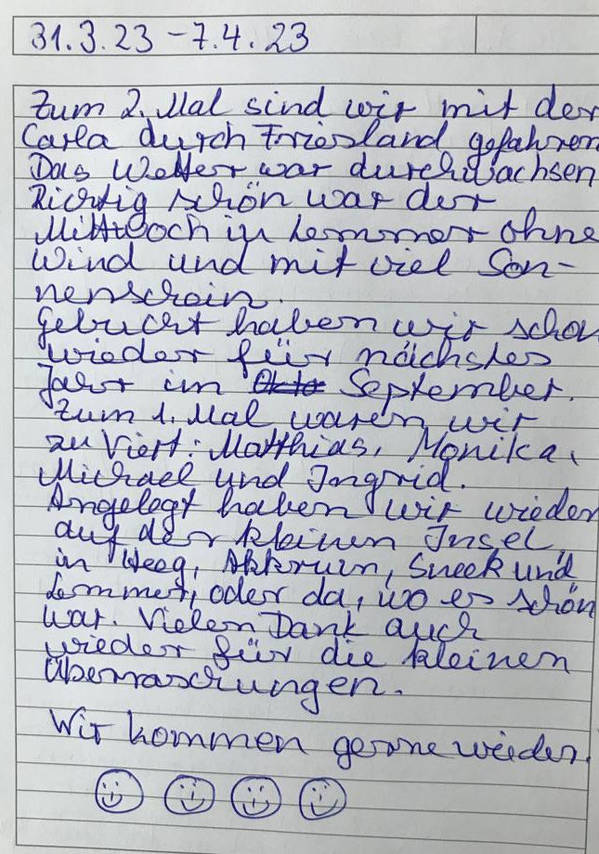 31.3.23 - 7.4.23
Zum 2. Mal sind wir mit der
Carla durch Friesland gefahren
Das Wetter war durchwachsen
Richtig schön war der
Mittwoch in Lemmer ohne
Wind und mit viel Son-
nenschein.
Gebucht haben wir schon
wieder für nächstes
Jahr im September.
Zum 1. Mal waren wir
zu Viert: Matthias, Monika,
Michael und Ingrid.
Angelegt haben wir wieder
auf der kleinen Insel,
in Heeg, Akkrum, Sneek und
Lemmer, oder da, wo es schön
war. Vielen Dank auch
wieder für die kleinen
Überraschungen.
Wir kommen gerne wieder.